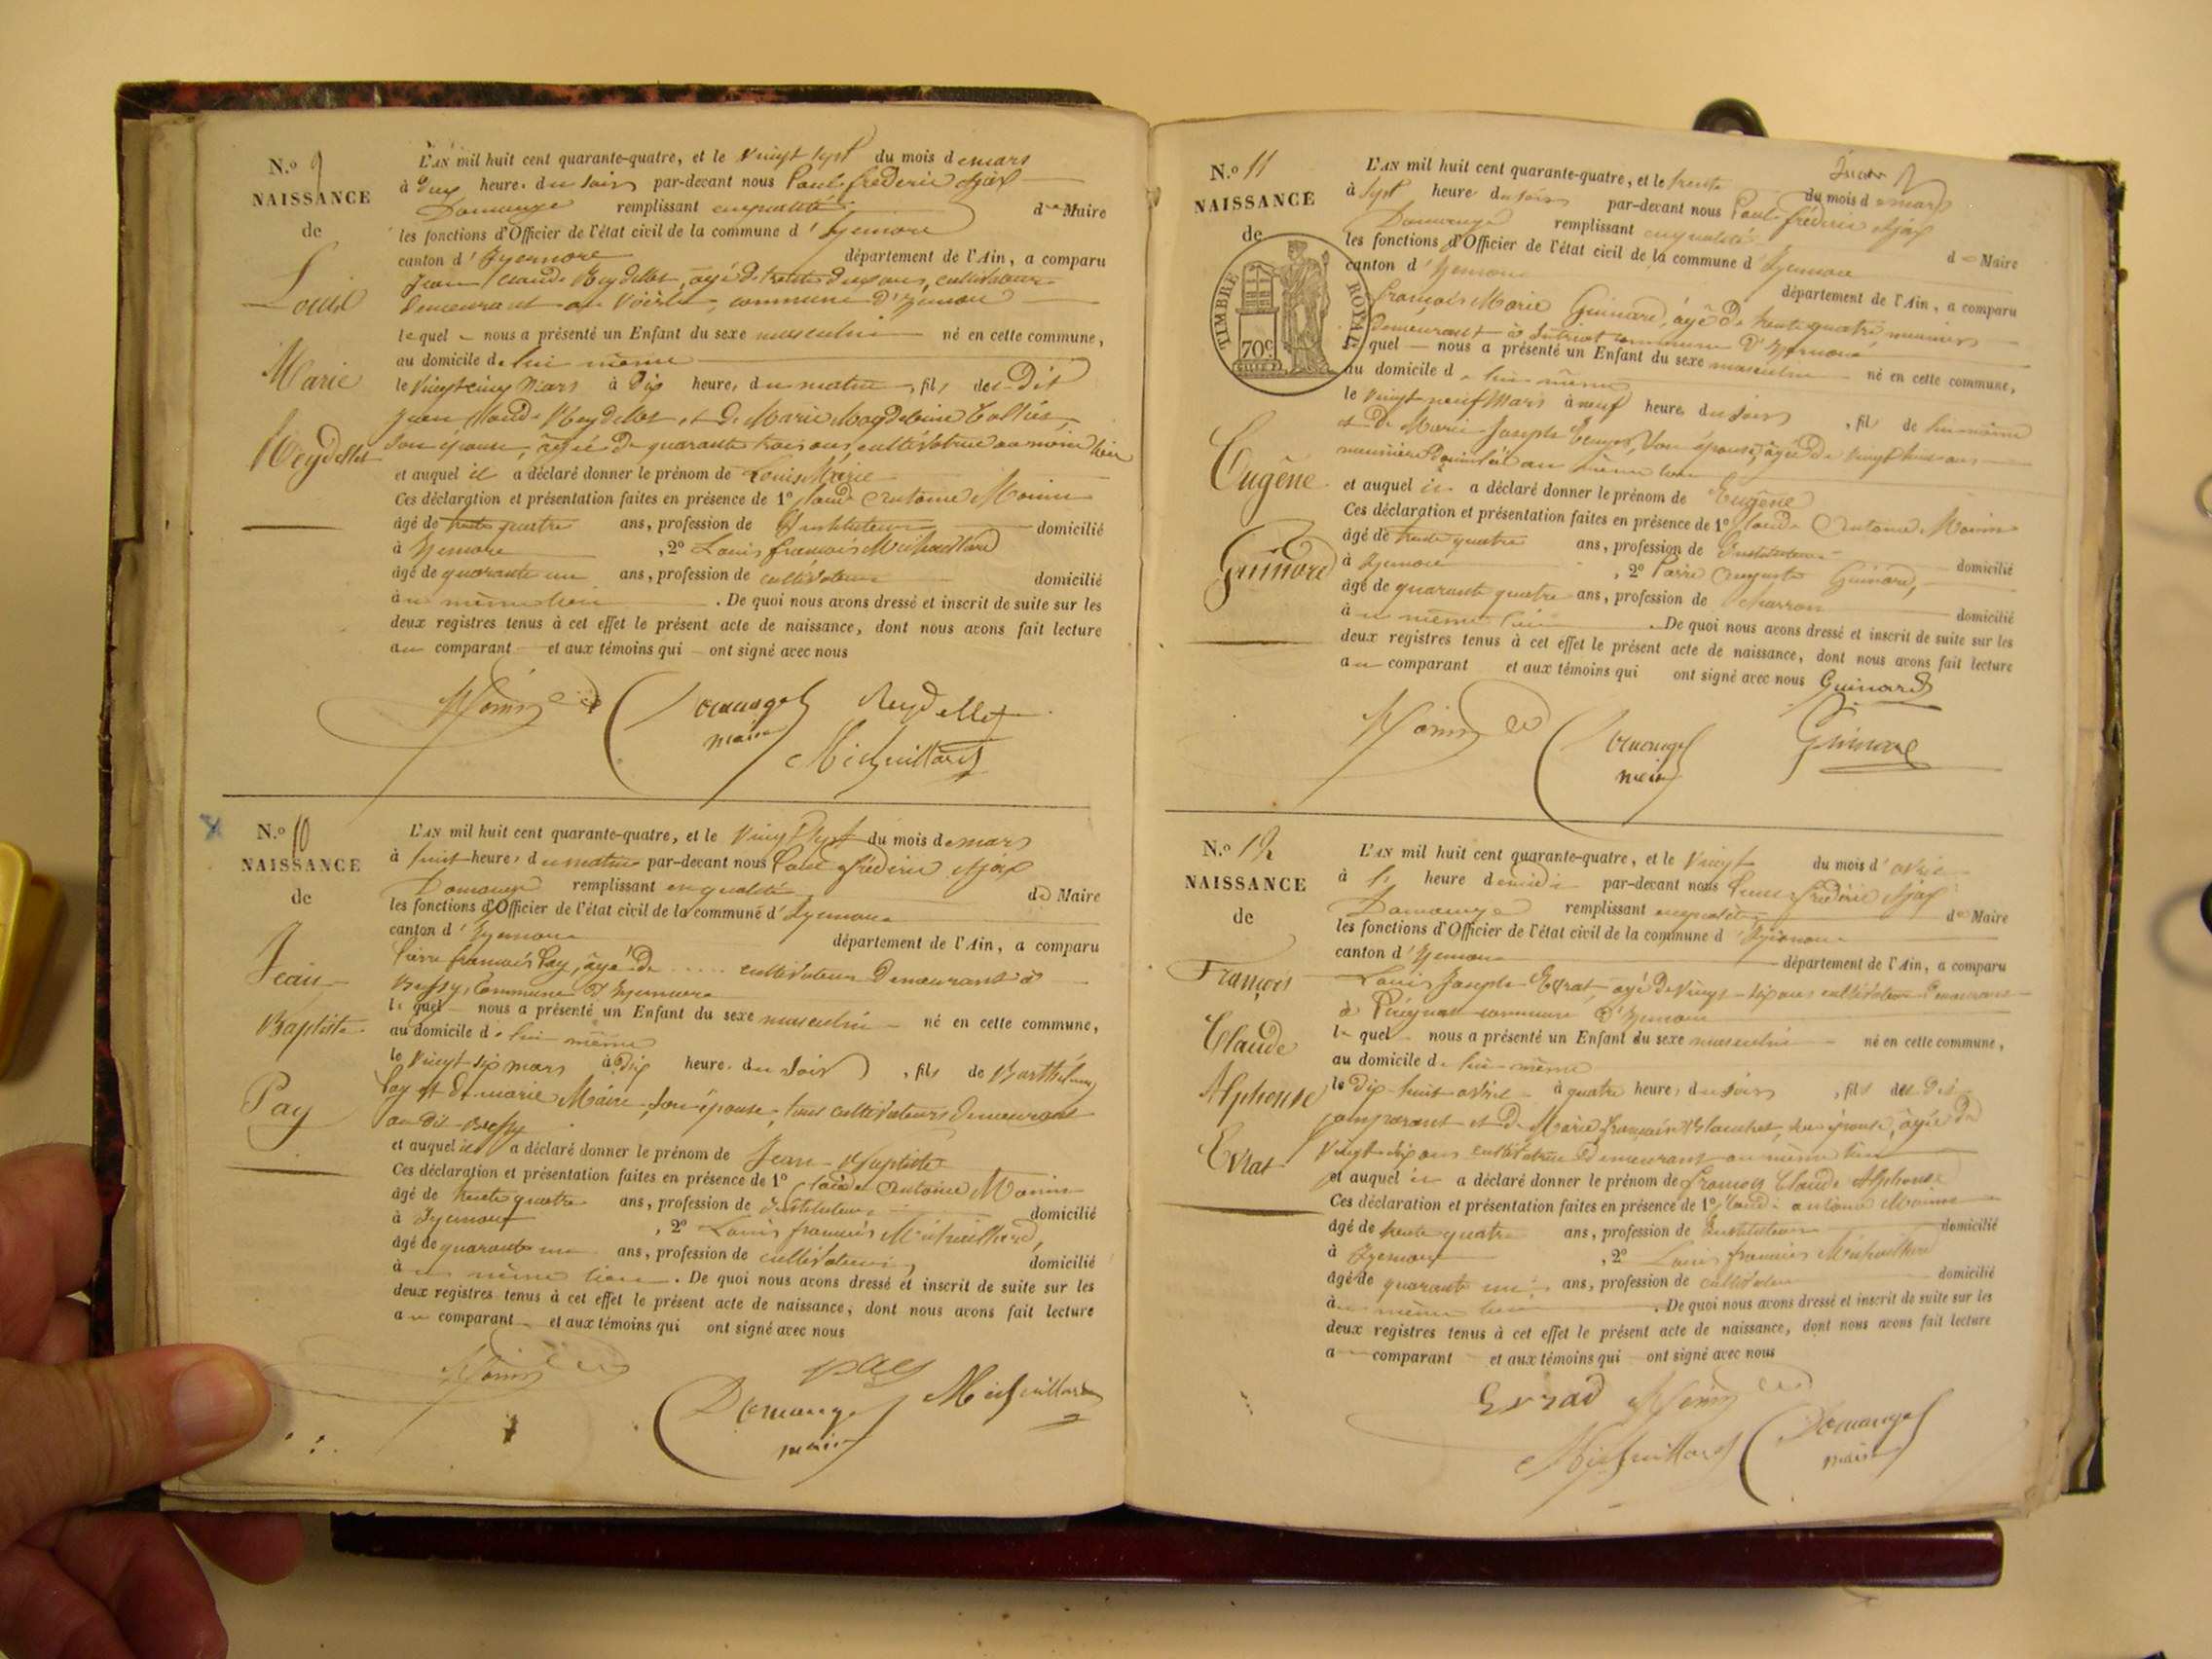 N.º 9
NAISSANCE
de
Louis
Marie
Reydellet
L'AN mil huit cent quarante-quatre, et le vingt sept du mois de mars
à deux heures du soir par-devant nous Paul frédéric Ajax
Domange remplissant en qualité de Maire
les fonctions d'Officier de l'état civil de la commune d'Izernore
canton d'Izernore département de l'Ain, a comparu
Jean Claude Reydellet, âgé de trente deux ans, cultivateur
demeurant à commune d'Izernore
lequel nous a présenté un Enfant du sexe masculin né en cette commune,
au domicile de lui même
le vingt cinq mars à dix heures du matin, fils des dit
Jean Claude Reydellet, et de Marie Magdeleine
son épouse, âgée de quarante trois ans, cultivatrice au même lieu
et auquel il a déclaré donner le prénom de Louis Marie
Ces déclaration et présentation faites en présence de 1º Claude Antoine Monin
âgé de trente quatre ans, profession de Instituteur domicilié
à Izernore, 2º Louis françois Michaillard
âgé de quarante un ans, profession de cultivateur domicilié
au même lieu. De quoi nous avons dressé et inscrit de suite sur les
deux registres tenus à cet effet le présent acte de naissance, dont nous avons fait lecture
au comparant et aux témoins qui ont signé avec nous
Monin Domange Reydellet
maire
Michaillard
N.º 10
NAISSANCE
de
Jean
Baptiste
Pay
L'AN mil huit cent quarante-quatre, et le vingt sept du mois de mars
à huit heures du matin par-devant nous Paul frédéric Ajax
Domange remplissant en qualité de Maire
les fonctions d'Officier de l'état civil de la commune d'Izernore
canton d'Izernore département de l'Ain, a comparu
Pierre françois Pay, âgé de ..... cultivateur demeurant à
Bussy, commune d'Izernore
lequel nous a présenté un Enfant du sexe masculin né en cette commune,
au domicile de lui même
le vingt six mars à dix heures du soir, fils de Barthélemy
Pay et de marie Maire, son épouse, tous cultivateurs demeurant
au dit Bussy
et auquel il a déclaré donner le prénom de Jean Baptiste
Ces déclaration et présentation faites en présence de 1º Claude Antoine Monin
âgé de trente quatre ans, profession de Instituteur domicilié
à Izernore, 2º Louis françois Michaillard,
âgé de quarante un ans, profession de cultivateur, domicilié
au même lieu. De quoi nous avons dressé et inscrit de suite sur les
deux registres tenus à cet effet le présent acte de naissance, dont nous avons fait lecture
au comparant et aux témoins qui ont signé avec nous
Monin pay
Domange Michaillard
maire
N.º 11
NAISSANCE
de
TIMBRE ROYAL
70c
Eugêne
Guinard
L'AN mil huit cent quarante-quatre, et le trente du mois de mars
à sept heures du soir par-devant nous Paul frédéric Ajax
Domange remplissant en qualité de Maire
les fonctions d'Officier de l'état civil de la commune d'Izernore
canton d'Izernore département de l'Ain, a comparu
françois Marie Guinard, âgé de trente quatre meunier
demeurant à commune d'Izernore
lequel nous a présenté un Enfant du sexe masculin né en cette commune,
au domicile de lui même
le vingt neuf Mars à neuf heures du soir, fils de lui même
et de Marie Joseph son épouse, âgée de vingt ans
meunière domiciliée au même lieu
et auquel il a déclaré donner le prénom de Eugêne
Ces déclaration et présentation faites en présence de 1º Claude Antoine Monin
âgé de trente quatre ans, profession de Instituteur domicilié
à Izernore, 2º Pierre Auguste Guinard,
âgé de quarante quatre ans, profession de charron domicilié
au même lieu. De quoi nous avons dressé et inscrit de suite sur les
deux registres tenus à cet effet le présent acte de naissance, dont nous avons fait lecture
au comparant et aux témoins qui ont signé avec nous Guinard
Monin Domange Guinard
maire
N.º 12
NAISSANCE
de
François
Claude
Alphonse
Evrat
L'AN mil huit cent quarante-quatre, et le vingt du mois d'avril
à heure de midi par-devant nous Paul frédéric Ajax
Domange remplissant en qualité de Maire
les fonctions d'Officier de l'état civil de la commune d'Izernore
canton d'Izernore département de l'Ain, a comparu
Louis Joseph Evrat, âgé de vingt six ans cultivateur demeurant
à Pérignat commune d'Izernore
lequel nous a présenté un Enfant du sexe masculin né en cette commune,
au domicile de lui même
le dix huit avril à quatre heures du soir, fils des dit
comparant et de Marie françoise Blanchet, son épouse, âgée de
vingt six ans cultivatrice demeurant au même lieu
et auquel il a déclaré donner le prénom de françois Claude Alphonse
Ces déclaration et présentation faites en présence de 1º Claude antoine Monin
âgé de trente quatre ans, profession de Instituteur domicilié
à Izernore, 2º Louis françois Michaillard
âgé de quarante un ans, profession de cultivateur domicilié
au même lieu. De quoi nous avons dressé et inscrit de suite sur les
deux registres tenus à cet effet le présent acte de naissance, dont nous avons fait lecture
au comparant et aux témoins qui ont signé avec nous
Evrad Monin
Michaillard Domange
maire